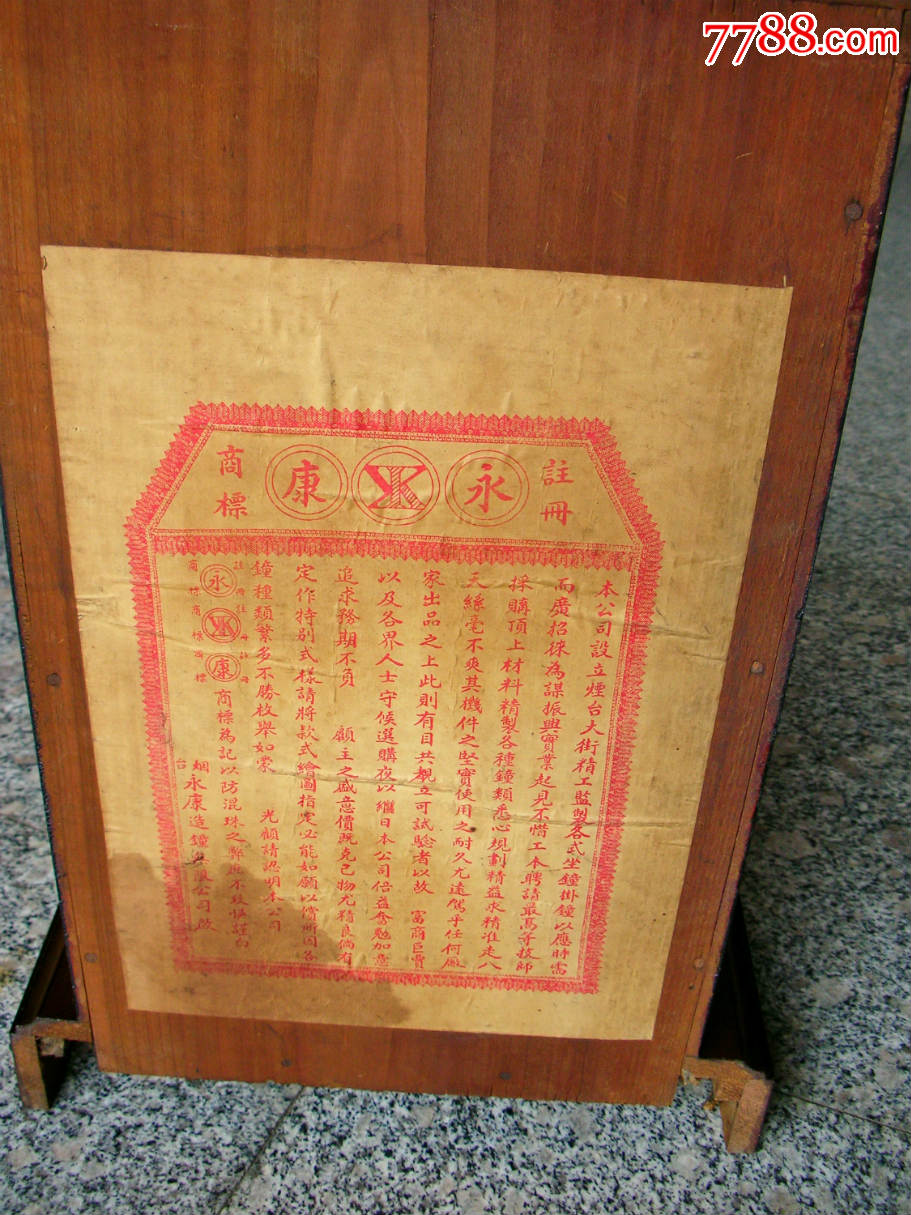 7788.com
註冊 永 YK 康 商標
本公司設立煙台大街精工監製各式坐鐘掛鐘以應時需
而廣招徠為謀振興實業起見不惜工本聘請最高等技師
採購頂上材料精製各種鐘類悉心規劃精益求精准走八
天絲毫不爽其機件之堅實使用之耐久尤遠駕乎任何廠
家出品之上此則有目共覩立可試驗者以故 富商巨賈
以及各界人士守候選購夜以繼日本公司倍益奮勉加意
追求務期不負 顧主之盛意價既克己物尤精良倘有
定作特別式樣請將款式繪圖指定必能如願以償所因各
鐘種類繁多不勝枚舉如蒙 光顧請認明本公司
註冊商標 永 註冊商標 YK 註冊商標 康 商標為記以防混珠之弊庶不致悞謹白
烟台永康造鐘有限公司啟